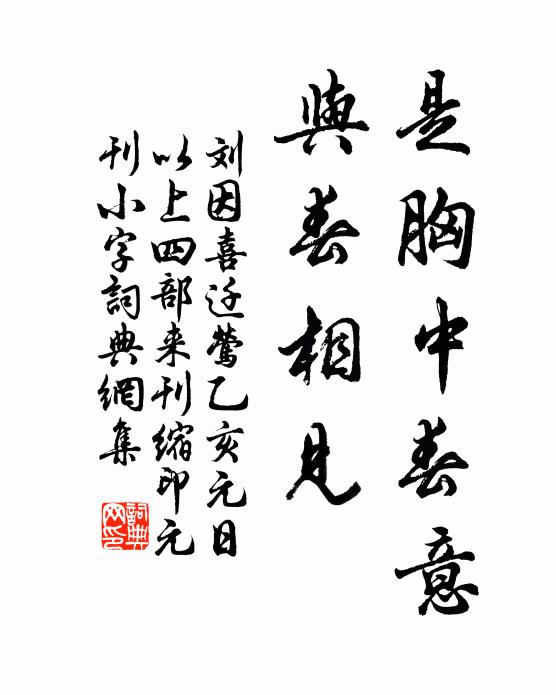 是胸中春意
與春相見
刘因喜迁莺乙亥元日
以上四部来刊缩印元
刊小字詞典網集
詞典
网印